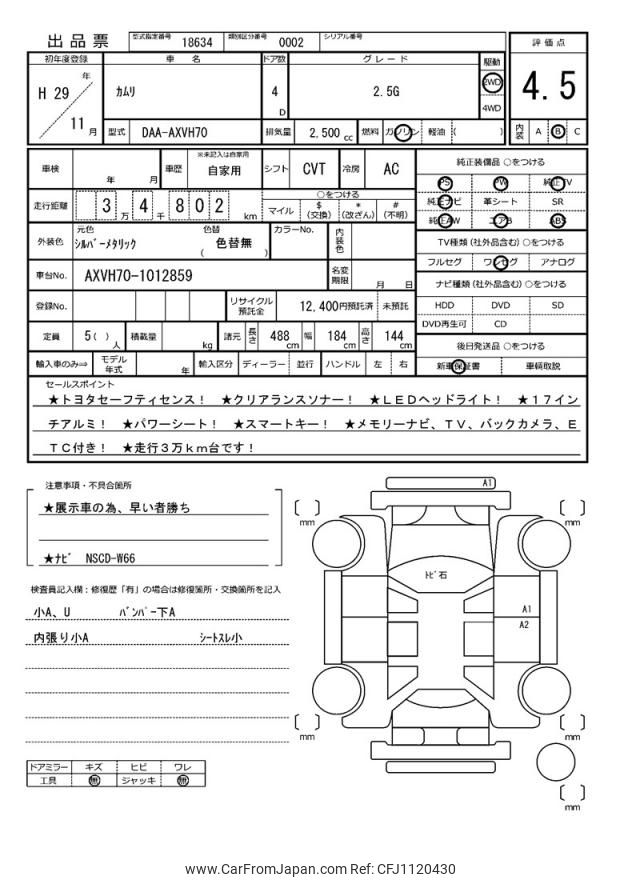 出品票 型式指定番号 18634 類別区分番号 0002 シリアル番号
初年度登録 車名 ドア数 グレード 駆動 評価点
H 29 年 11 月 カムリ 4 D 2.5G 2WD 4WD 4.5
型式 DAA-AXVH70 排気量 2,500 cc 燃料 ガソリン 軽油 ( ) 内装 A B C
車検 年 月 車歴 ※未記入は自家用 自家用 シフト CVT 冷房 AC 純正装備品 ○をつける
PS PW 純正TV
走行距離 3 万 4 千 8 0 2 km ○をつける マイル $ (交換) * (改ざん) # (不明)
純正ナビ 革シート SR
純正AW エアB ABS
外装色 元色 シルバーメタリック 色替 ( 色替無 ) カラーNo. 内装色
TV種類 (社外品含む) ○をつける
フルセグ ワンセグ アナログ
車台No. AXVH70-1012859 名変期限 月 日
ナビ種類 (社外品含む) ○をつける
登録No. リサイクル預託金 12,400円預託済 未預託
HDD DVD SD
DVD再生可 CD
定員 5( ) 人 積載量 kg 諸元 長さ 488 cm 幅 184 cm 高さ 144 cm
後日発送品 ○をつける
輸入車のみ⇒ モデル年式 年 輸入区分 ディーラー 並行 ハンドル 左 右
新車保証書 車輌取説
セールスポイント
★トヨタセーフティセンス! ★クリアランスソナー! ★LEDヘッドライト! ★17イン
チアルミ! ★パワーシート! ★スマートキー! ★メモリーナビ、TV、バックカメラ、E
TC付き! ★走行3万km台です!
注意事項・不具合箇所
★展示車の為、早い者勝ち
★ナビ NSCD-W66
検査員記入欄:修復歴「有」の場合は修復箇所・交換箇所を記入
小A、U バンパー下A
内張り小A シートスレ小
ドアミラー キズ ヒビ ワレ
工具 無 ジャッキ 無
A1
トビ石
A1
A2
mm
mm
mm
mm
mm
www.CarFromJapan.com Ref: CFJ1120430